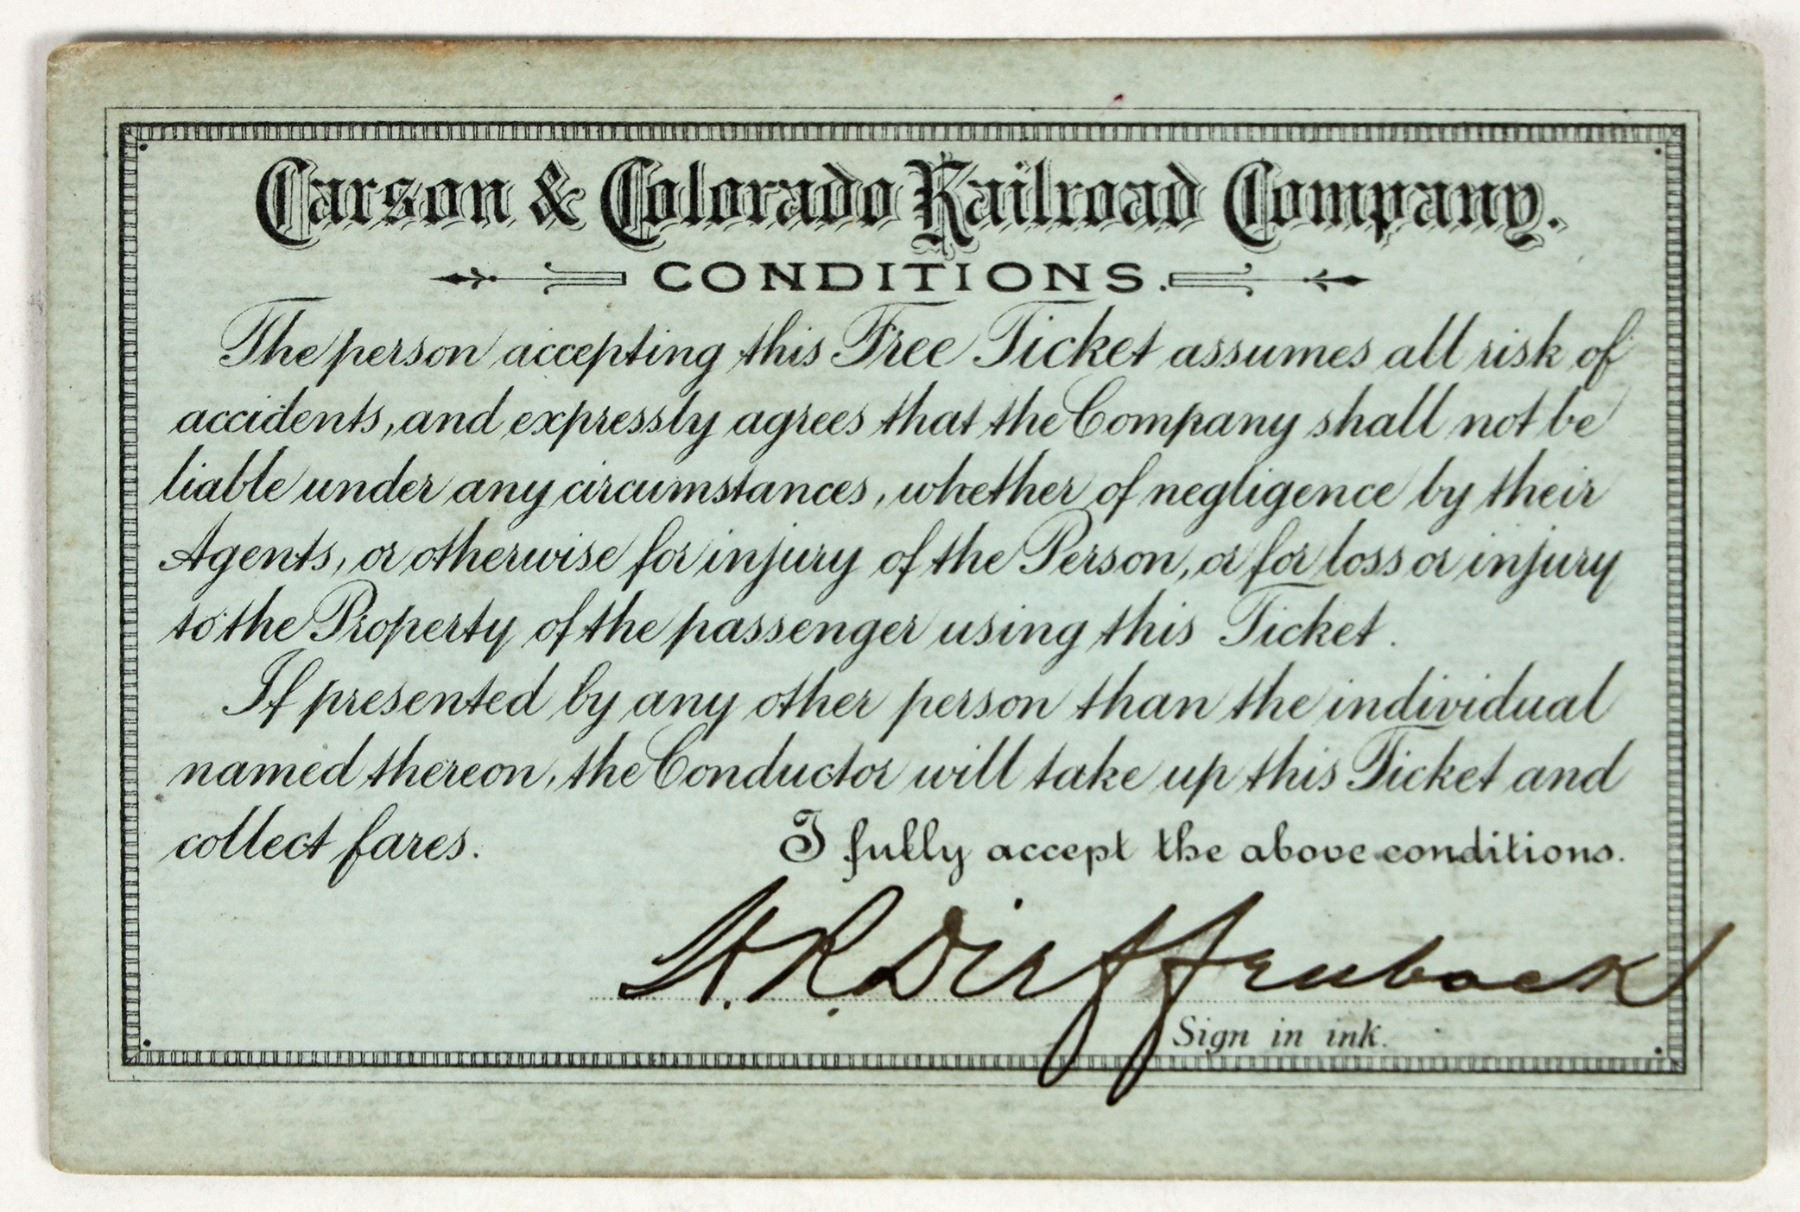 Carson & Colorado Railroad Company.
CONDITIONS.
The person accepting this Free Ticket assumes all risk of
accidents, and expressly agrees that the Company shall not be
liable under any circumstances, whether of negligence by their
Agents, or otherwise for injury of the Person, or for loss or injury
to the Property of the passenger using this Ticket.
If presented by any other person than the individual
named thereon, the Conductor will take up this Ticket and
collect fares.
I fully accept the above conditions.
Sign in ink.